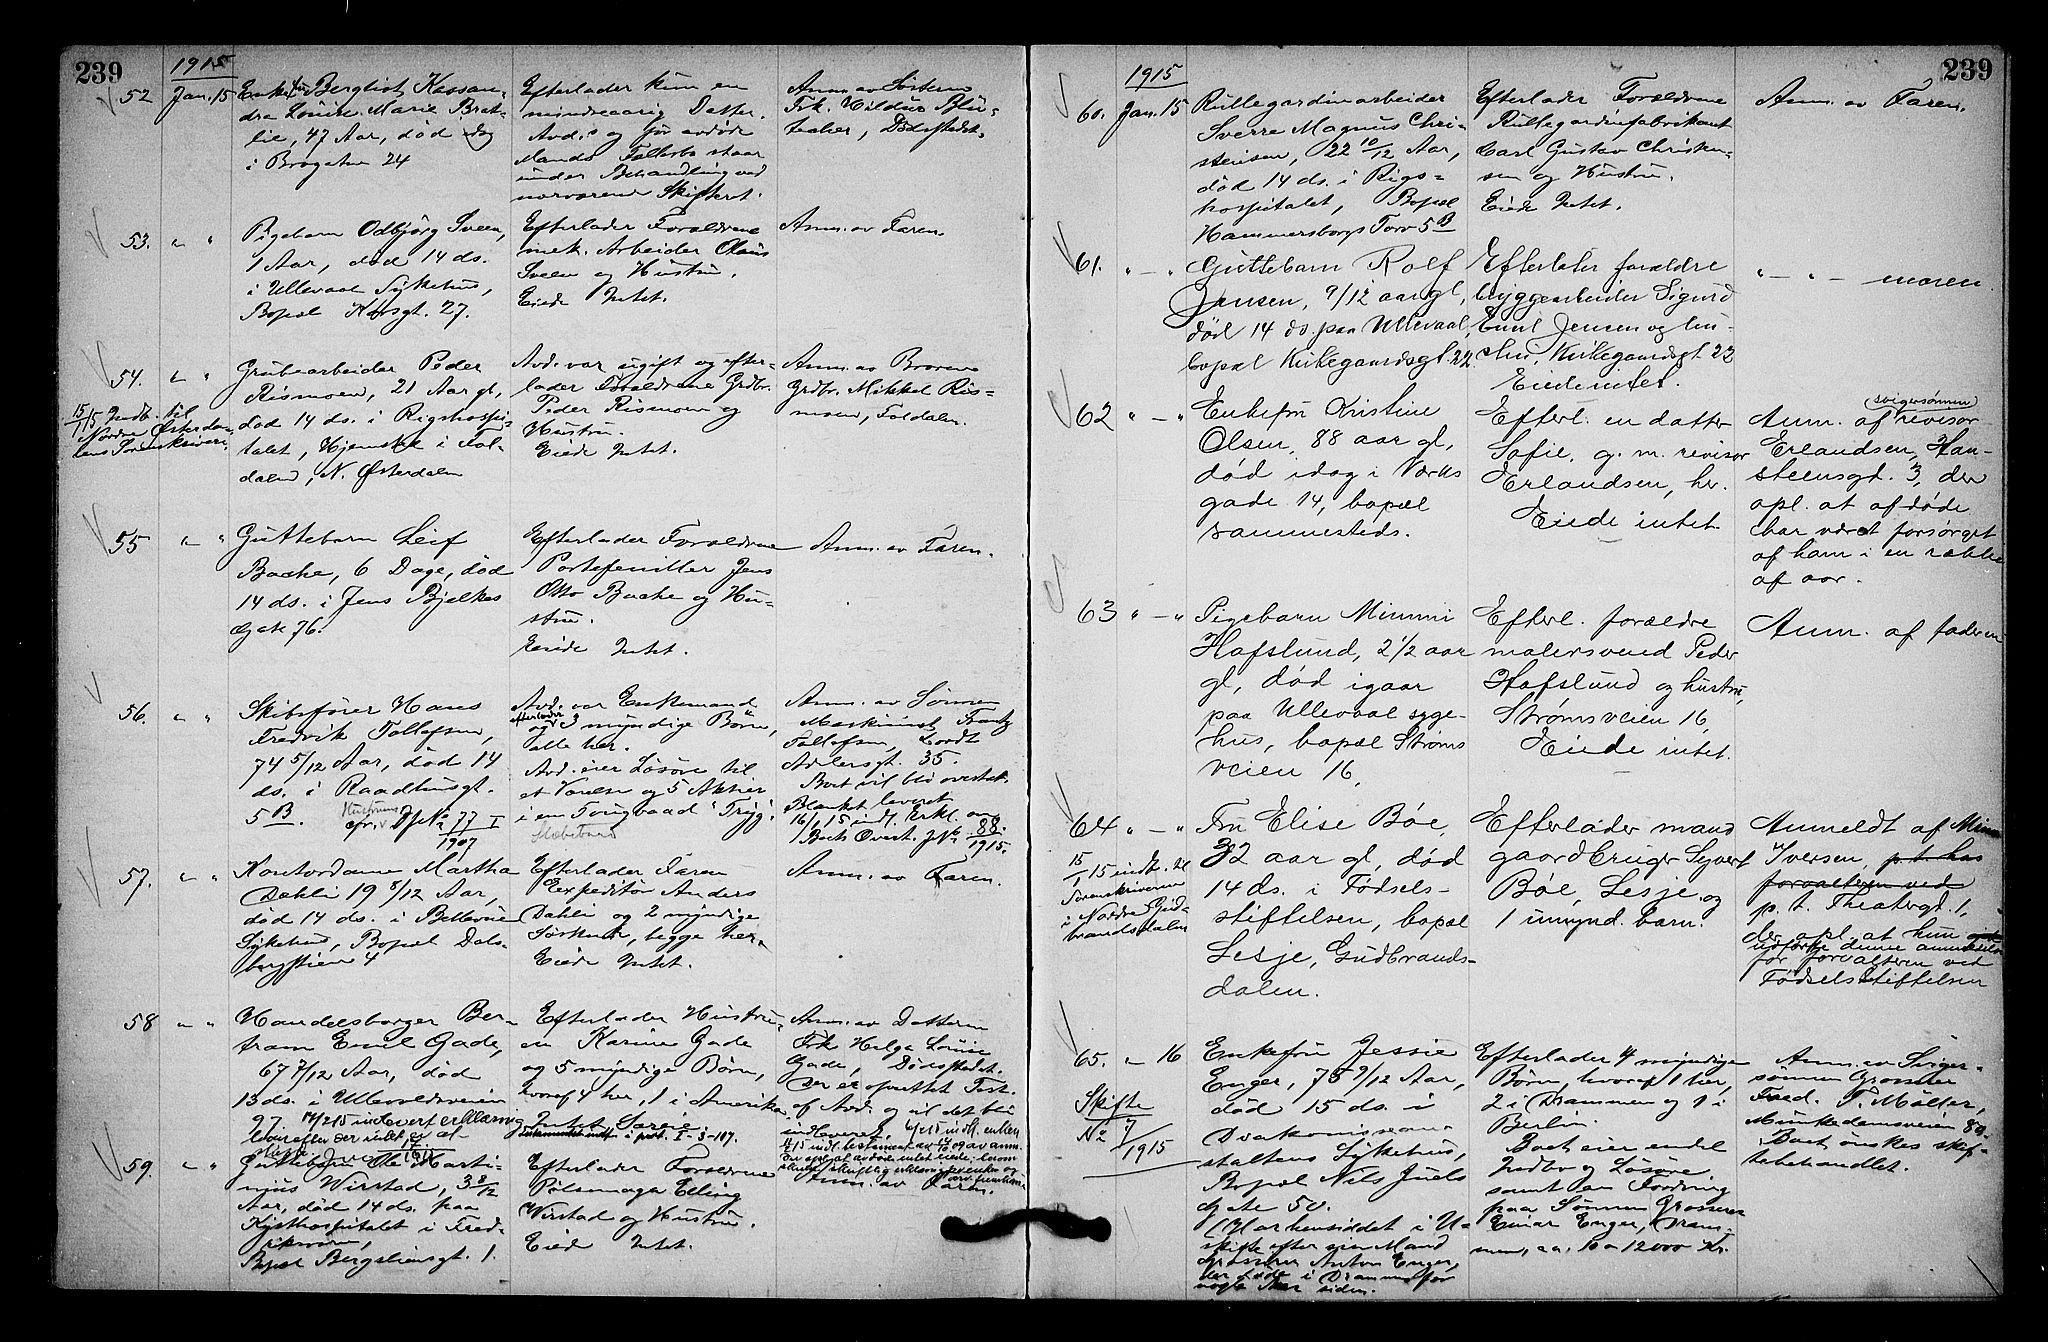 239
1915
52 Jan. 15
Enkefru Bergliot Kassan-
dra Louise Marie Brat-
lie, 47 Aar, død idag
i Brogaten 24
Efterlader kun en
mindreaarig Datter.
Avd. s og før avdøde
Mands Fællesbo staar
under Behandling ved
nærværende Skifteret.
Anm. av Søsteren
Frk. Hildur
Dødsstedet.
53. " "
Pigebarn Odbjørg Sveen,
1 Aar, død 14 ds.
i Ullevaal Sykehus,
Bopæl Korsgt. 27.
Efterlader Forældrene
mek. Arbeider Olaus
Sveen og Hustru.
Eiede Intet.
Anm. av Faren.
54. " "
15/1 15 Indb. til
Nordre Østerda-
lens Sorenskriveri
Grubearbeider Peder
Rismoen, 21 Aar gl,
død 14 ds. i Rigshospi-
talet, Hjemsted i Fol-
dalen, N. Østerdalen
Avd. var ugift og efter-
lader Forældrene Grdbr.
Peder Rismoen og
Hustru.
Eiede Intet.
Anm. av Broren
Grdbr. Mikkel Ris-
moen, Foldalen.
55 " "
Guttebarn Leif
Bache, 6 Dage, død
14 ds. i Jens Bjelkes
Gate 76.
Efterlader Forældrene
Portefeuiller Jens
Otto Bache og Hu-
stru.
Eiede Intet.
Anm. av Faren.
56. " "
Skibsfører Hans
Fredrik Tollefsen,
74 5/12 Aar, død 14
ds. i Raadhusgt.
5 B.
Hustruens
cfr. J№ 77 I
1907
Avd. var Enkemand
efterlader
og 3 myndige Børn,
alle her.
Avd. eier Løsøre til
et Værelse og 5 Aktier
i en Tougbaad "Tryg".
Slæbebaad
Anm. av Sønnen
Maskinist Frantz
Tollefsen, Tordt
Adlersgt. 35.
Boet vil bli overtat.
Blanket leveret
16/1 15 indl. Erkl. om
Boets Overt. J№ 88
1915.
57. " "
Kontordame Martha
Dæhli 19 8/12 Aar,
død 14 ds. i Bellevue
Sykehus, Bopæl Dals-
bergstien 4
Efterlader Faren
Expeditør Anders
Dahli og 2 myndige
Søskende, begge her.
Eiede Intet.
Anm. av Faren.
58 " "
Handelsborger Ber-
tram Emil Gade,
67 7/12 Aar, død
13 ds. i Ullevoldsveien
97. 17/2 15 indlevert erklæring
hvorefter der intet er at
skifte
Efterlader Hustru-
en Karine Gade
og 5 myndige Børn,
hvoraf 4 her, 1 i Amerika
Intet Særeie.
Anm. av Datteren
Frk Helga Louise
Gade, Dødsstedet.
Der er oprettet Test.
af Avd. og vil det bli
indleveret.
59. " "
Guttebarn Ole Marti-
njus Wirstad, 3 8/12
Aar, død 14 ds. paa
Kysthospitalet i Fred-
riksværn,
Bopæl Bergsliensgt. 1.
Efterlader Forældrene
Pølsemager Elling
Wirstad og Hustru.
Eiede Intet.
Anm. av Faren.
239
1915
60. Jan. 15
Rullegardinarbeider
Sverre Magnus Chri-
stensen, 22 10/12 Aar,
død 14 ds. i Rigs-
hospitalet, Bopæl
Hammersborgs Torv 5 B
Efterlader Forældrene
Rullegardinfabrikant
Carl Gustav Christen-
sen og Hustru.
Eiede Intet.
Anm. av Faren.
61. " — "
Guttebarn Rolf
Jensen, 9/12 aar gl,
død 14 ds. paa Ullevaal,
bopæl Kirkegaardsgt 22.
Efterlater forældre
bryggearbeider Sigurd
Emil Jensen og hu-
stru, Kirkegaardsgt 22
Eiede intet.
" — " — moren.
62 " — "
Enkefru Kristine
Olsen, 88 aar gl,
død idag i Verks
gade 14, bopæl
sammesteds.
Efterl. en datter
Sofie, g. m. revisor
Erlandsen, her.
Eiede intet.
svigersønnen
Anm. af revisor
Erlandsen, Han-
steensgt. 3, der
opl. at afdøde
har været forsørget
af ham i en række
af aar.
63 " — "
Pigebarn Mimmi
Hafslund, 2 1/2 aar
gl, død igaar
paa Ullevaal syge-
hus, bopæl Strøms
veien 16,
Efterl. forældre
malersvend Peder
Hafslund og hustru,
Strømsveien 16,
Eiede intet.
Anm. af faderen
64 " — "
15/1 15 indb. til
Sorenskriveren
i Nordre Gud-
brandsdalen
Fru Elise Bøe,
32 aar gl, død
14 ds. i Fødsels-
stiftelsen, bopæl
Lesje, Gudbrands-
dalen.
Efterlader mand
gaardbruger Syvert
Bøe, Lesje, og
1 umynd. barn.
Anmeldt af
Iversen, p. t. hos
forvalteren ved
p. t. Theatergt. 1,
der opl. at hun
udførte denne anmeldelse
for forvalteren ved
Fødselsstiftelsen
65. " 16
Skifte
№ 7
1915
Enkefru Jessie
Enger, 75 9/12 Aar,
død 15 ds. i
Diakonissean-
staltens Sykehus,
Bopæl Nils Juels
Gate 50.
(Har hensiddet i U-
skifte efter sin Mand
Grosserer Anton Enger,
der døde i Drammen for
nogle Aar siden.
Efterlader 4 myndige
Børn, hvoraf 1 her,
2 i Drammen og 1 i
Berlin.
Boet eier endel
Indbo og Løsøre
samt en Fordring
paa Sønnen Grosserer
Einar Enger, Dram-
men, ca. 10 a 12000 Kr.
Anm. av Sviger-
sønnen Grosserer
Fred. T. Møller,
Munkedamsveien 80.
Boet ønskes skif-
tebehandlet.